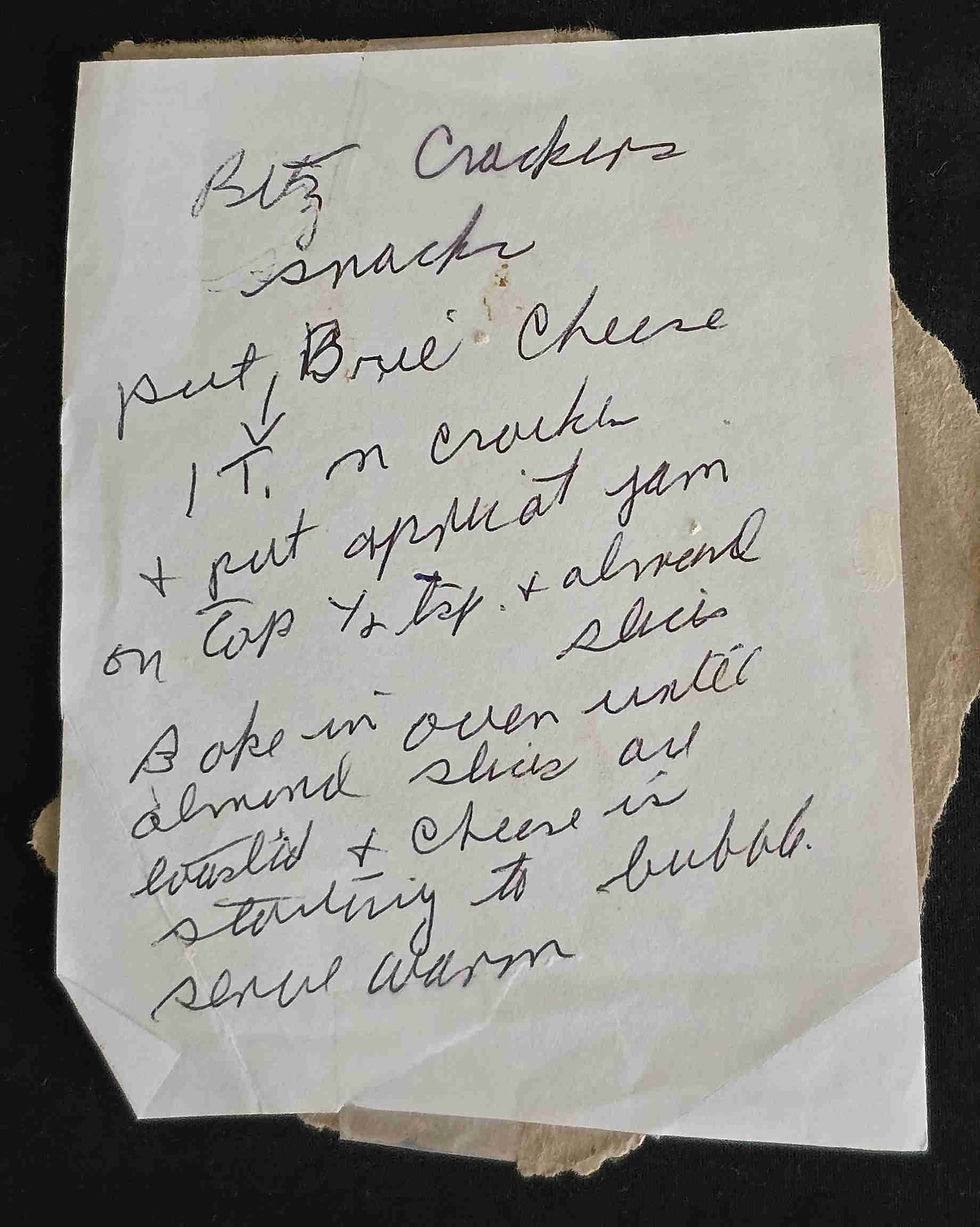 Ritz Crackers
snacks
put Brie Cheese
1 T. on cracker
+ put appricat jam
on top 1/2 tsp. + almond
slices
Bake in oven until
almond slices are
toasted + cheese is
starting to bubble.
serve warm